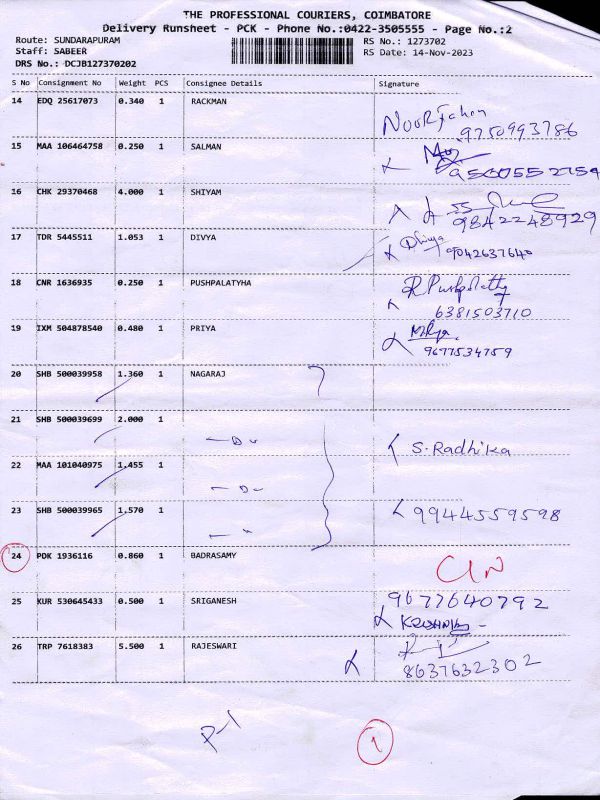 THE PROFESSIONAL COURIERS, COIMBATORE
Delivery Runsheet - PCK - Phone No.:0422-3505555 - Page No.:2
Route: SUNDARAPURAM RS No.: 1273702
Staff: SABEER RS Date: 14-Nov-2023
DRS No.: DCJB127370202
S No Consignment No Weight PCS Consignee Details Signature
14 EDQ 25617073 0.340 1 RACKMAN
NOORJahan
9750993786
15 MAA 106464758 0.250 1 SALMAN
16 CHK 29370468 4.000 1 SHIYAM
9842248929
17 TDR 5445511 1.053 1 DIVYA Dhivya
9042637640
18 CNR 1636935 0.250 1 PUSHPALATYHA R Pushpalatha
6381503710
19 IXM 504878540 0.480 1 PRIYA
9677534759
20 SHB 500039958 1.360 1 NAGARAJ
21 SHB 500039699 2.000 1
S. Radhika
22 MAA 101040975 1.455 1
23 SHB 500039965 1.570 1 9944559598
24 PDK 1936116 0.860 1 BADRASAMY
25 KUR 530645433 0.500 1 SRIGANESH 9677640792
26 TRP 7618383 5.500 1 RAJESWARI
8637632302
P-1
1